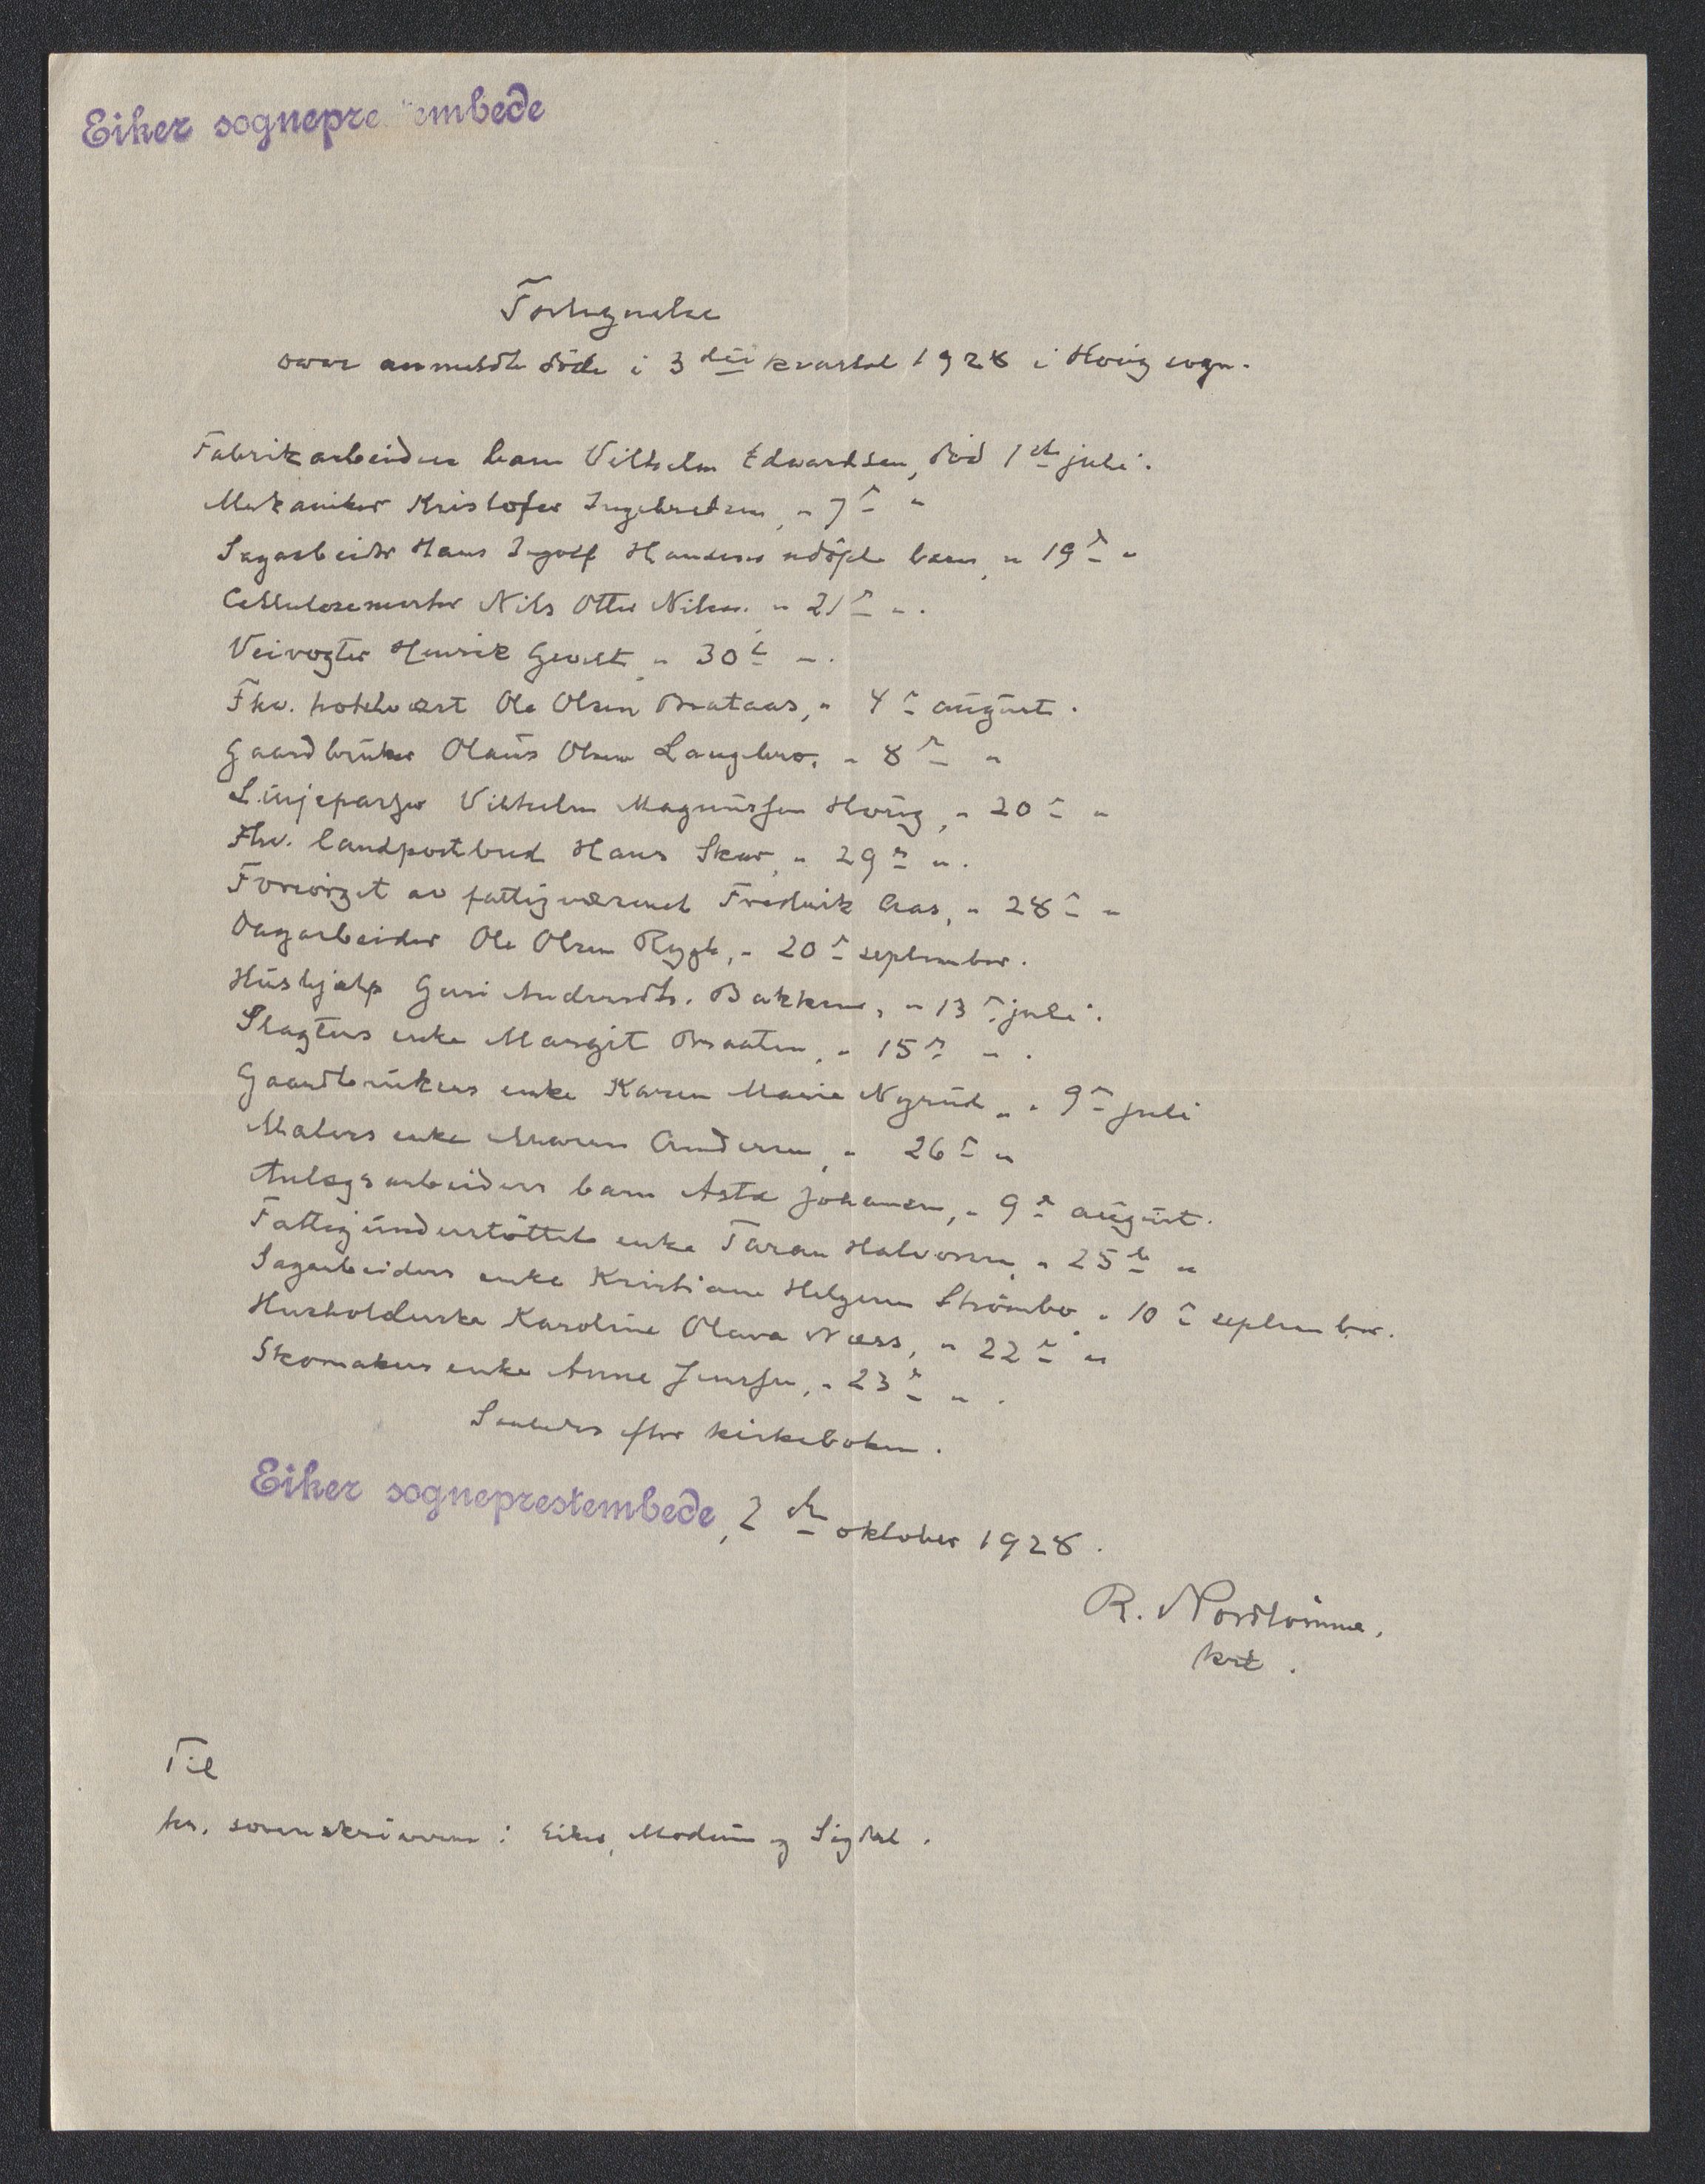 Eiker sognepre embede
Fortegnelse
over anmeldte döde i 3 die kvartal 1928 i Hovig sogn.
Fabrikarbeiders barn Vilhelm Edwardsen, död 1ste juli.
Mekaniker Kristofer Ingebretsen, " 7de "
Sagarbeider Hans Ingolf Hansens udöpte barn, " 19de "
Cellulosemester Nils Otter Nilsen. " 21de ".
Veivogter Henrik " 30te ".
Fhv. hotelvært Ole Olsen Brataas, " 4de august.
Gaardbruker Olaus Olsen Langebro. " 8de "
Linjepasser Vilhelm Magnussen Hovig, " 20de "
Fhv. landpostbud Hans Skar, " 29de ".
Forsörget av fattigvæsenet Fredrik Aas, " 28de "
Dagarbeider Ole Olsen Rygh, " 20de september.
Hushjælp Guri Andersdt. Bakken, " 13de juli.
Slagters enke Margit Braaten, " 15de ".
Gaardbrukers enke Karen Marie Nyrud, " 9de juli
Malers enke Maren Andersen, " 26de "
Anlægsarbeiders barn Asta Johansen, " 9de august.
Fattigunderstöttet enke Taran Halvorsen, " 25de "
Sagarbeiders enke Kristiane Helgesen Strömbo, " 10de september.
Husholderske Karoline Olava Næss, " 22de "
Skomakers enke Anne Jenssen, " 23de ".
Saaledes efter kirkeboken.
Eiker sogneprestembede, 2den oktober 1928.
R.
Til
hr. sorenskriveren i Eiker, Modum og Sigdal.